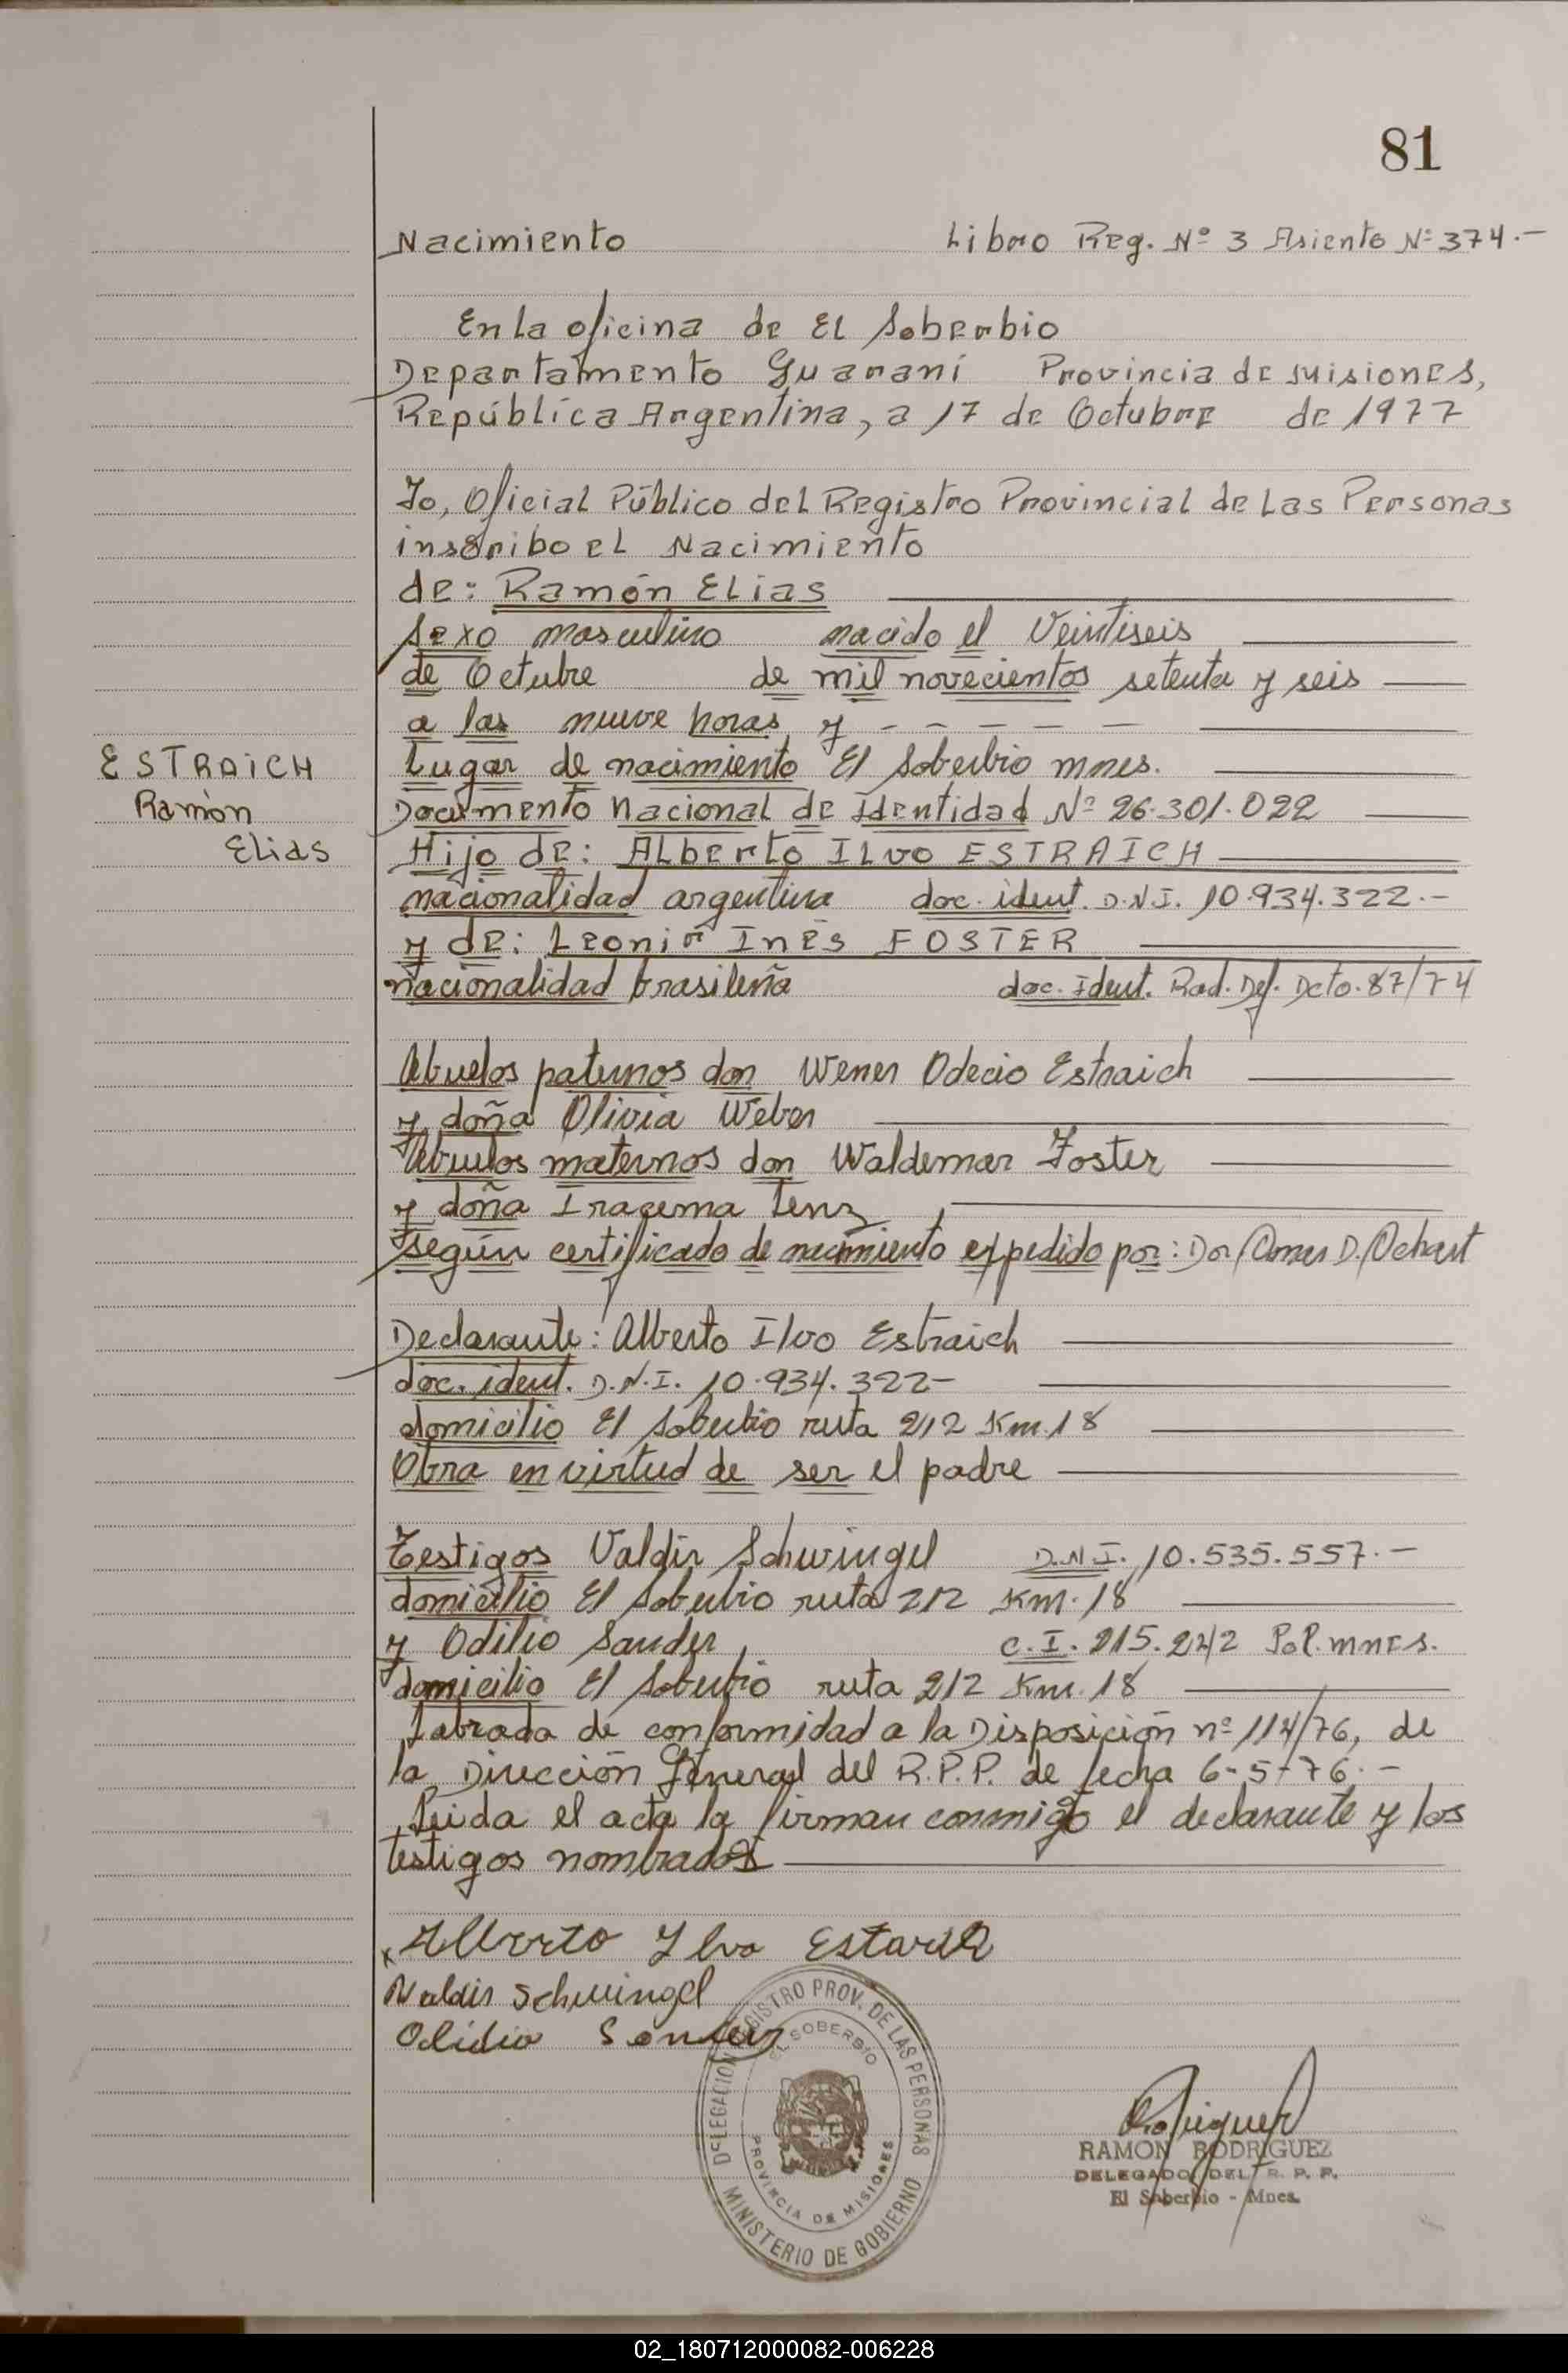 81
Nacimiento Libro Reg. Nº 3 Asiento Nº 374.-
En la oficina de El Soberbio
Departamento Guaraní Provincia de Misiones,
República Argentina, a 17 de Octubre de 1977
Yo, Oficial Público del Registro Provincial de Las Personas
inscribo el Nacimiento
de: Ramón Elias
Sexo masculino nacido el Veintiseis
de Octubre de mil novecientos setenta y seis
a las nueve horas y - - - - - -
Lugar de nacimiento El Soberbio mnes.
Documento Nacional de Identidad Nº 26.301.022
Hijo de: Alberto Ilvo ESTRAICH
nacionalidad argentina doc. ident. D.N.I. 10.934.322.-
y de: Leonir Inés FOSTER
nacionalidad brasileña doc. ident. Rad. Def. Dcto. 87/74
ESTRAICH
Ramón
Elias
Abuelos paternos don Wener Odecio Estraich
y doña Olivia Weber
Abuelos maternos don Waldemar Foster
y doña Iracema Tenz
según certificado de nacimiento expedido por: Dor. Omar D. Ochart
Declarante: Alberto Ilvo Estraich
doc. ident. D.N.I. 10.934.322-
domicilio El Soberbio ruta 212 Km. 18
Obra en virtud de ser el padre
Testigos Valdir Schwingel D.N.I. 10.535.557.-
domicilio El Soberbio ruta 212 Km. 18
y Odilio Sander C.I. 215.242 Pol. mnes.
domicilio El Soberbio ruta 212 Km. 18
Labrada de conformidad a la Disposición nº 114/76, de
la Dirección General del R.P.P. de fecha 6-5-76.-
Leida el acta la firman conmigo el declarante y los
testigos nombrados
Alberto Ylvo
Valdir Schwingel
Olidio
DELEGACION REGISTRO PROV. DE LAS PERSONAS
EL SOBERBIO
PROVINCIA DE MISIONES
MINISTERIO DE GOBIERNO
RAMON RODRIGUEZ
DELEGADO DEL R. P. P.
El Soberbio - Mnes.
02_180712000082-006228